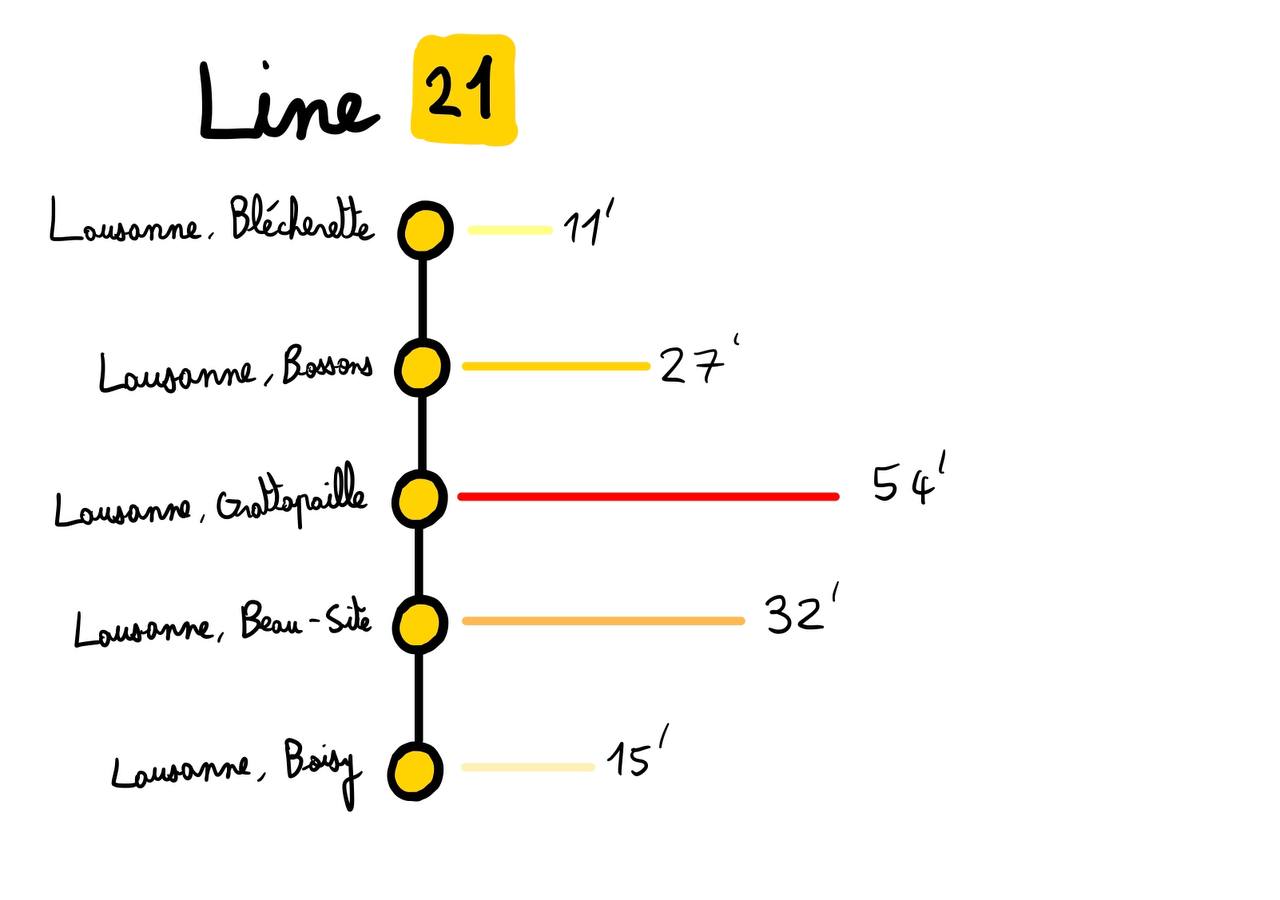 Line 21
Lausanne, Blécherette 11'
Lausanne, Bossons 27'
Lausanne, Grattapaille 54'
Lausanne, Beau-Site 32'
Lausanne, Boisy 15'